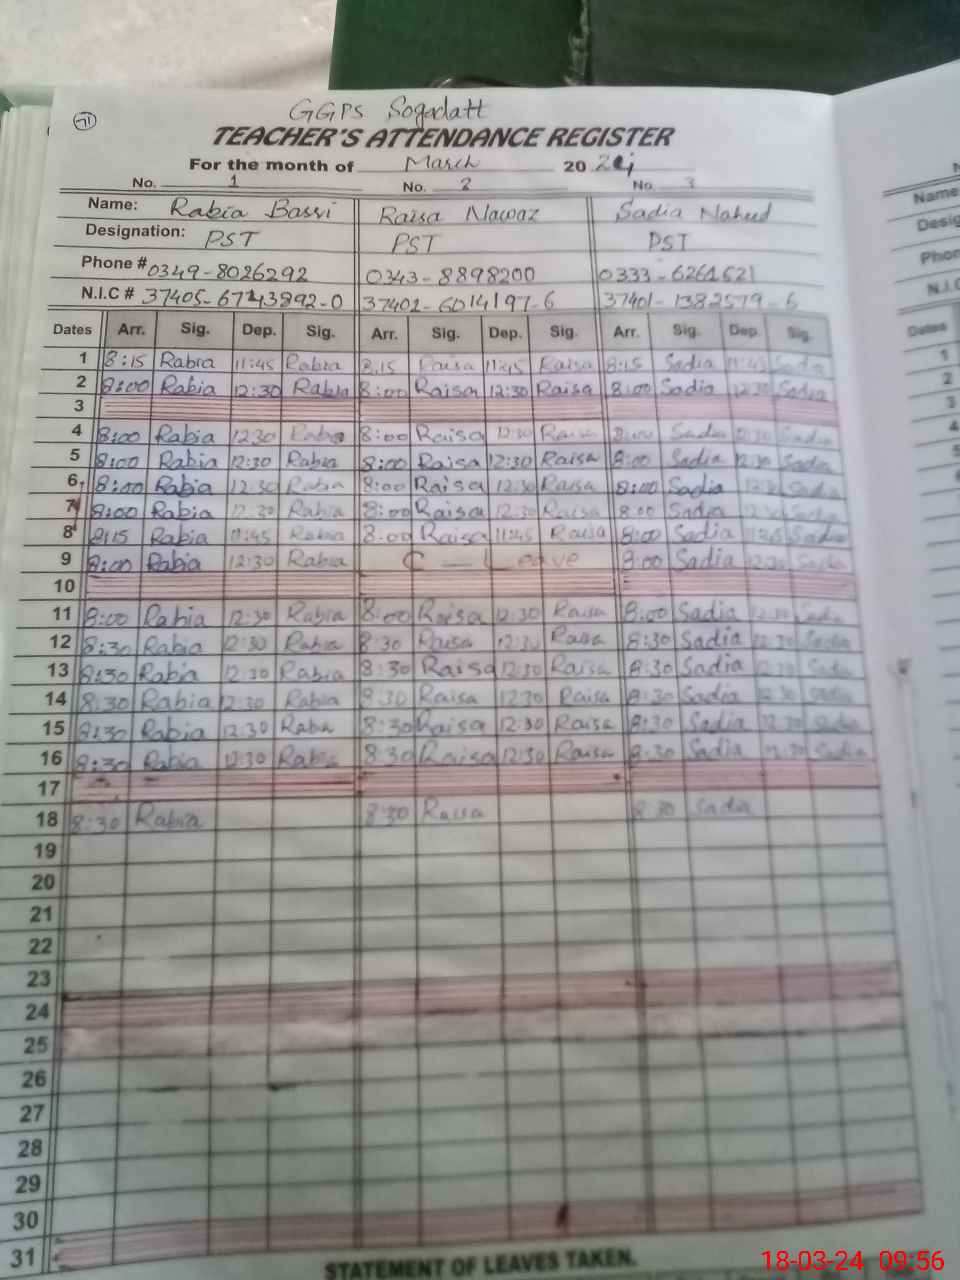 71
GGPS Sogadatt
TEACHER'S ATTENDANCE REGISTER
For the month of March 2024
No. 1 No. 2 No. 3
Name: Rabia Bassi Raisa Nawaz Sadia Naheed
Designation: PST PST PST
Phone # 0349-8026292 0343-8898200 0333-6261521
N.I.C # 37405-6743892-0 37401-6014197-6 37401-1382579-6
Dates Arr. Sig. Dep. Sig. Arr. Sig. Dep. Sig. Arr. Sig. Dep. Sig.
1 8:15 Rabia 11:45 Rabia 8:15 Raisa 11:45 Raisa 8:15 Sadia 11:45 Sadia
2 8:00 Rabia 12:30 Rabia 8:00 Raisa 12:30 Raisa 8:00 Sadia 12:30 Sadia
3
4 8:00 Rabia 12:30 Rabia 8:00 Raisa 12:30 Raisa 8:00 Sadia 12:30 Sadia
5 8:00 Rabia 12:30 Rabia 8:00 Raisa 12:30 Raisa 8:00 Sadia 12:30 Sadia
6 8:00 Rabia 12:30 Rabia 8:00 Raisa 12:30 Raisa 8:00 Sadia 12:30 Sadia
7 8:00 Rabia 12:30 Rabia 8:00 Raisa 12:30 Raisa 8:00 Sadia 12:30 Sadia
8 8:15 Rabia 11:45 Rabia 8:00 Raisa 11:45 Raisa 8:00 Sadia 11:45 Sadia
9 8:00 Rabia 12:30 Rabia C - Leave 8:00 Sadia 12:30 Sadia
10
11 8:00 Rabia 12:30 Rabia 8:00 Raisa 12:30 Raisa 8:00 Sadia 12:30 Sadia
12 8:30 Rabia 12:30 Rabia 8:30 Raisa 12:30 Raisa 8:30 Sadia 12:30 Sadia
13 8:30 Rabia 12:30 Rabia 8:30 Raisa 12:30 Raisa 8:30 Sadia 12:30 Sadia
14 8:30 Rabia 12:30 Rabia 8:30 Raisa 12:30 Raisa 8:30 Sadia 12:30 Sadia
15 8:30 Rabia 12:30 Rabia 8:30 Raisa 12:30 Raisa 8:30 Sadia 12:30 Sadia
16 8:30 Rabia 12:30 Rabia 8:30 Raisa 12:30 Raisa 8:30 Sadia 12:30 Sadia
17
18 8:30 Rabia 8:30 Raisa 8:30 Sadia
19
20
21
22
23
24
25
26
27
28
29
30
31
STATEMENT OF LEAVES TAKEN.
18-03-24 09:56
Name
Phon
N.I.C
Dates
1
2
3
4
5